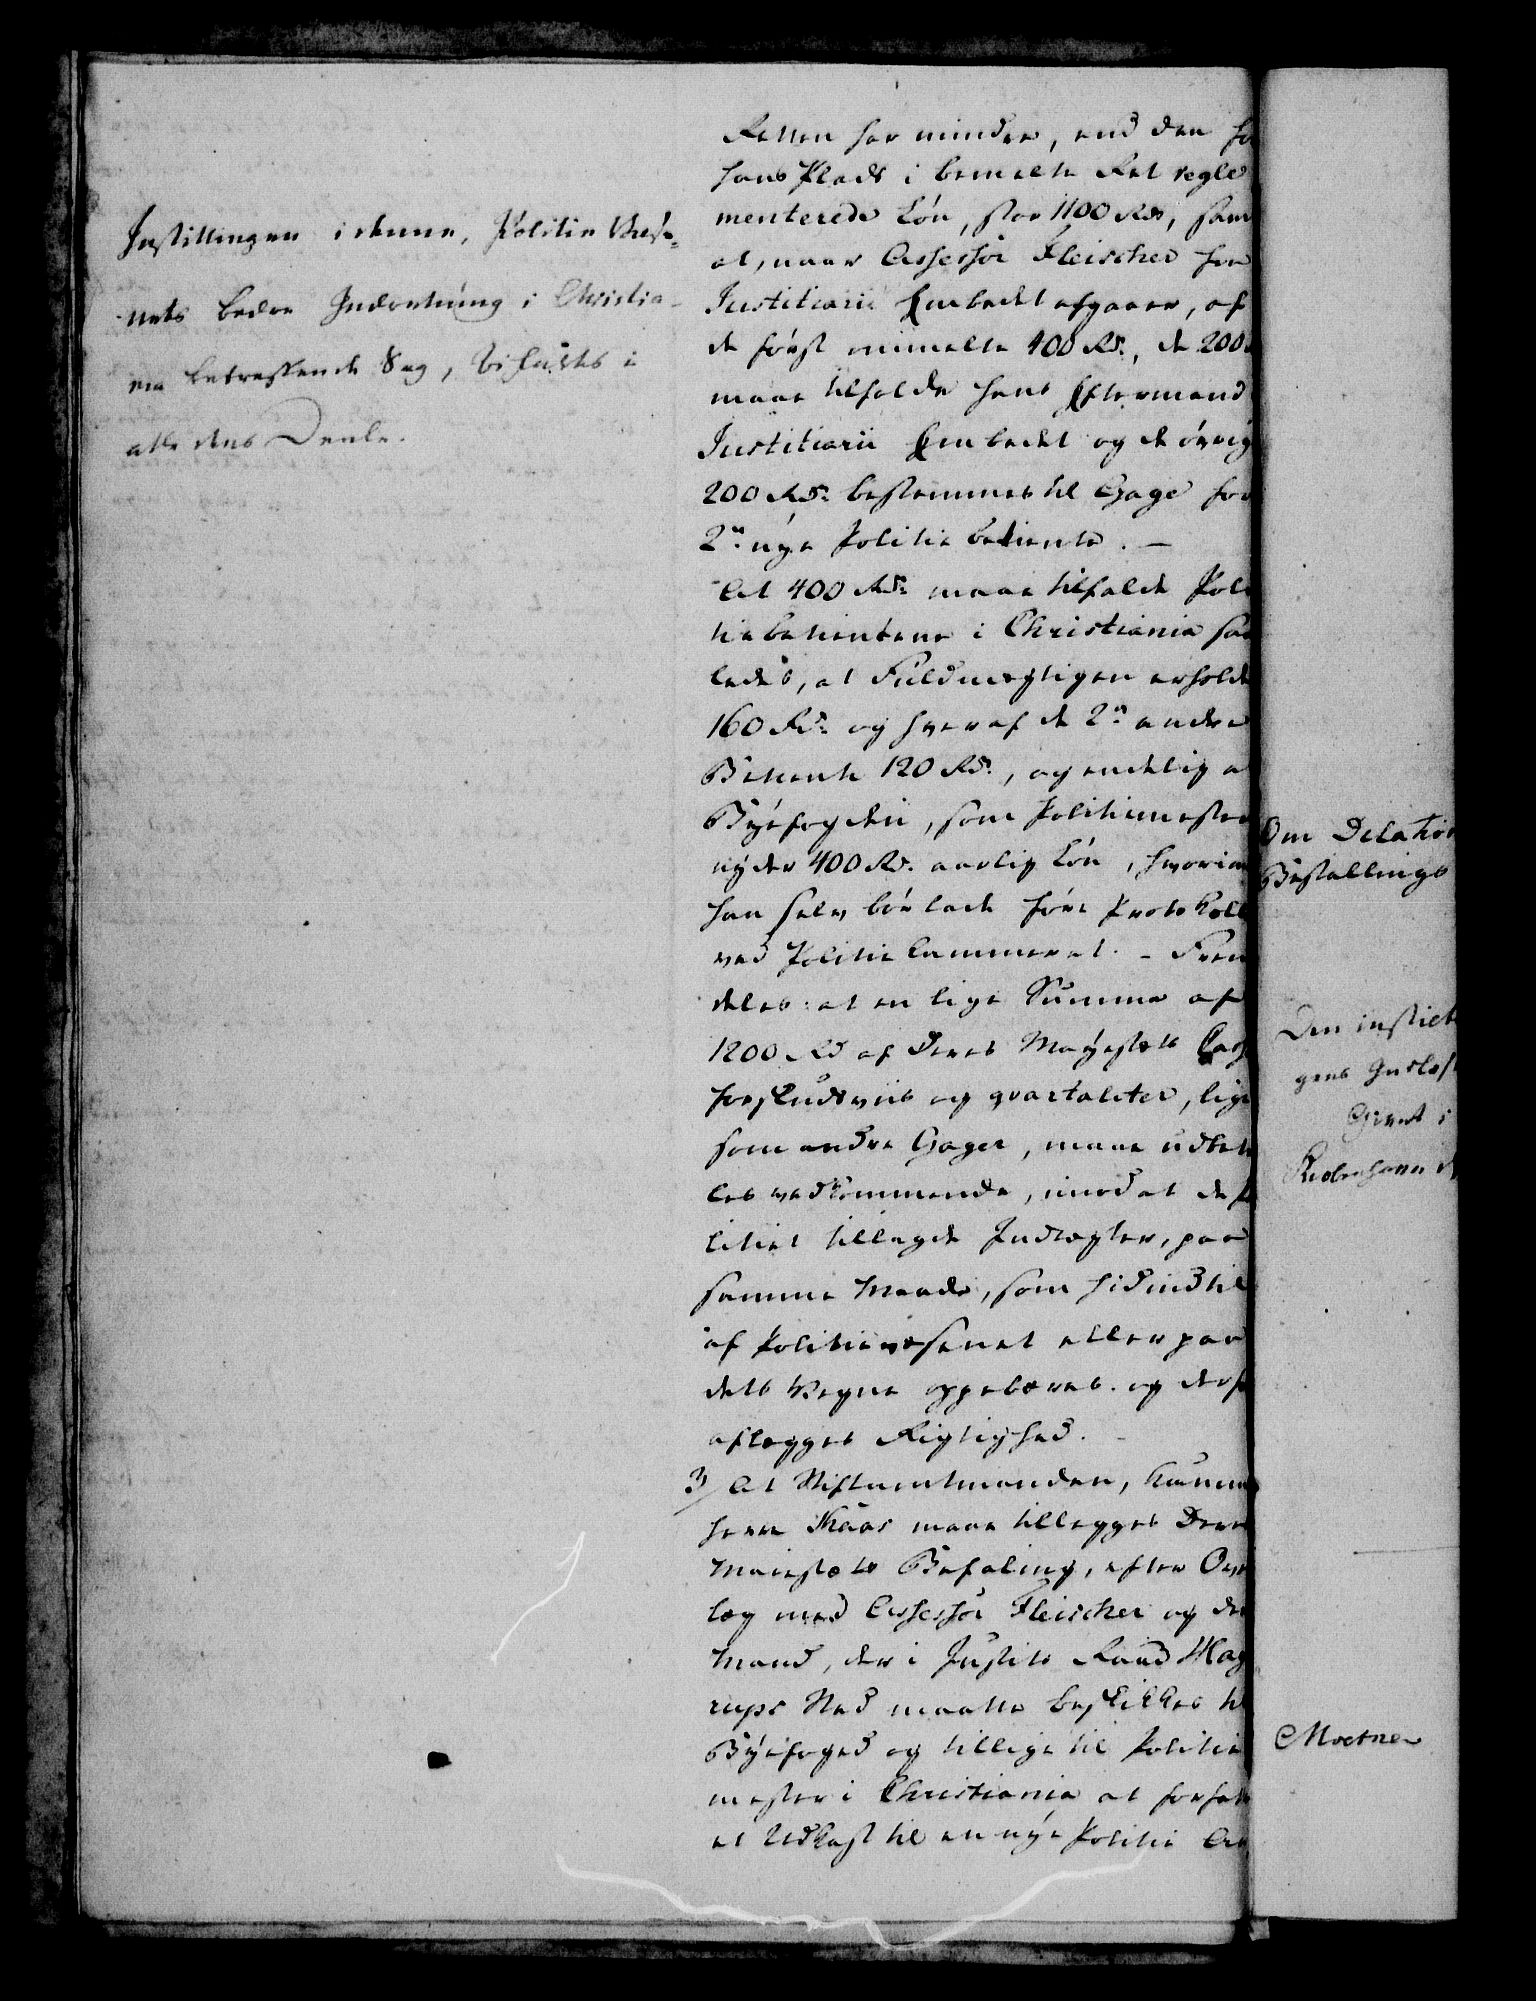 Instillingen i denne, Politie Væse-
nets bedre Indretning i Christia-
nia betreffende Sag, bifaldes i
alle dens Deele.
Retten har mindre, end den fo
hans Plads i bemelte Ret regle
menterede Løn, stor 1100 Rd, sam
at, naar Assessor Fleischer fra
Justitiarii Embedet afgaaer, af
de først ommelte 400 Rd., de 200
maae tilfalde hans Eftermand
Justitiarii Embedet og de øvrig
200 Rd. bestemmes til Gage for
2de nye Politie betiente. —
At 400 Rd. maae tilfalde Poli
tiebetientene i Christiania saa
ledes, at Fuldmægtigen erholde
160 Rd. og hver af de 2de andre
Betiente 120 Rd., og endelig a
Byefogden, som Politiemester
nyder 400 Rd. aarlig Løn, hvorim
han selv bør lade føre Protokoll
ved Politie Cammeret. - Frem
deles: at en lige Summa af
1200 Rd af Deres Majestets Cass
forskudsviis og qvartaliter, lige
som andre Gager, maae udbeta
les vedkommende, imod at de Po
litiet tillagde Indtægter, paa
samme Maade, som hidindtil
af Politievæsenet eller paa
dets Vegne oppebæres og derfo
aflægges Rigtighed. -
3/ At Stiftamtmanden, Kamme
herre Kaas maae tillægges Deres
Maiestæts Befaling, efter Over
læg med Assessor Fleischer og den
Mand, der i Justits Raad Mag
rups Sted maatte beskikkes til
Byefoged og tillige til Politie
mester i Christiania at forfatte
et Udkast til en nye Politie An
Om Dilation
Bestallings
Den indstilte
Givet i
Kiøbenhavn d